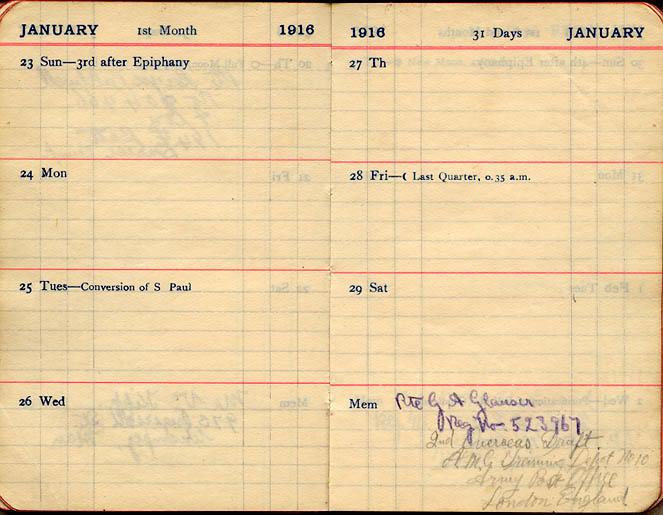 JANUARY 1st Month 1916
23 Sun—3rd after Epiphany
24 Mon
25 Tues—Conversion of S Paul
26 Wed
1916 31 Days JANUARY
27 Th
28 Fri—☾ Last Quarter, 0.35 a.m.
29 Sat
Mem Pte G A Glanser
Reg No 523967
2nd Overseas Draft.
A.M.C Training Depot No 10
Army Post Office
London England